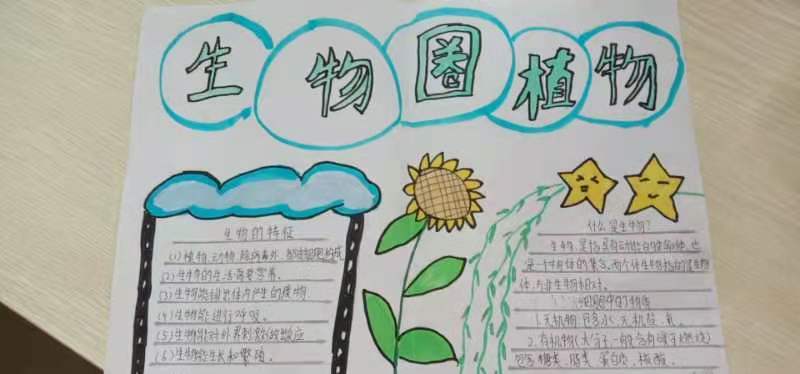 生物圈植物
生物的特征
(1)植物、动物、除病毒外,都由细胞构成
(2)生物的生活需要营养。
(3)生物能排出体内产生的废物
(4)生物能进行呼吸。
(5)生物能对外界刺激做出反应
(6)生物能生长和繁殖。
什么是生物?
生物是指具有动能的生命体,也
是一个物体的集合,
与非生物相对。
细胞中的物质
1.无机物:包含水、无机盐、氧。
2.有机物(大分子一般含有碳可燃烧)
包含糖类、脂类、蛋白质、核酸。